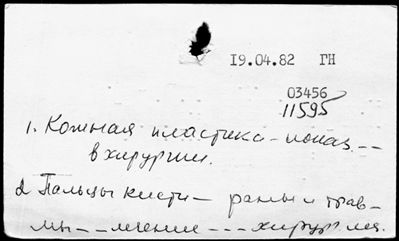 19.04.82 ГН
03456
11595
1. Кожная пластика - показ. --
в хирургии.
2 Пальцы кисти - раны и трав-
мы - - лечение - - - хирург ия.